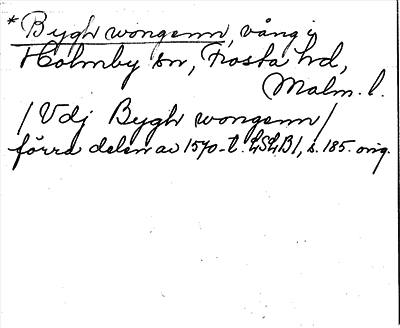 *Bygh wongenn, vång i
Holmby sn, Frosta hd,
Malm. l.
/Vdj Bygh wongenn/
förra delen av 1570-t. LSLB1, s. 185. orig.